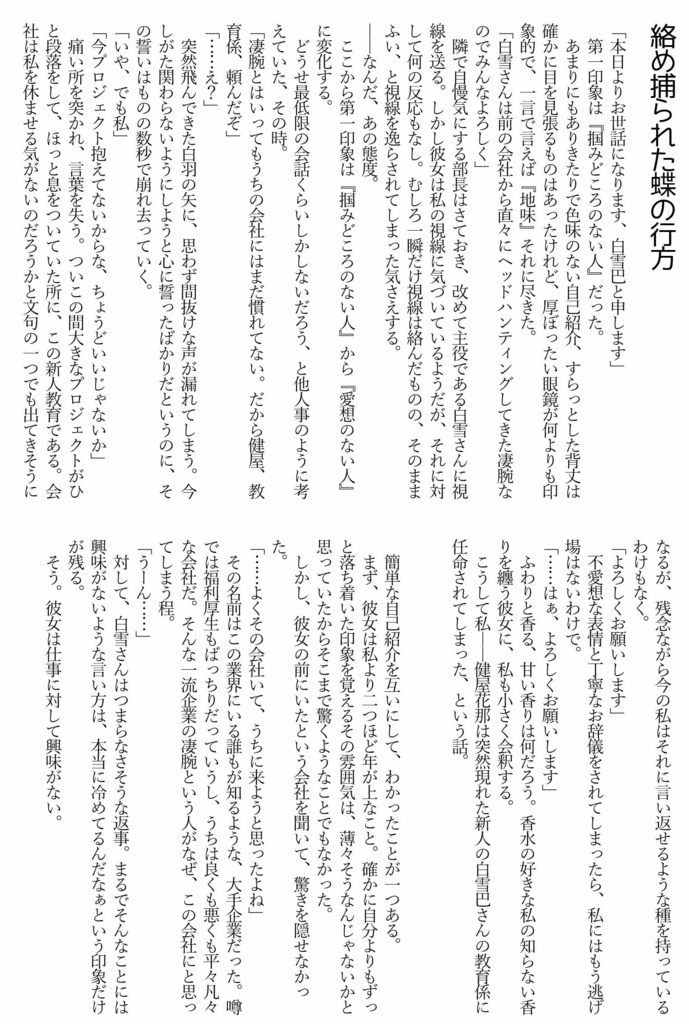 絡め捕られた蝶の行方
「本日よりお世話になります、白雪巴と申します」
第一印象は『掴みどころのない人』だった。
あまりにもありきたりで色味のない自己紹介、すらっとした背丈は
確かに目を見張るものはあったけれど、厚ぼったい眼鏡が何よりも印
象的で、一言で言えば『地味』それに尽きた。
「白雪さんは前の会社から直々にヘッドハンティングしてきた凄腕な
のでみんなよろしく」
隣で自慢気にする部長はさておき、改めて主役である白雪さんに視
線を送る。しかし彼女は私の視線に気づいているようだが、それに対
して何の反応もなし。むしろ一瞬だけ視線は絡んだものの、そのまま
ふい、と視線を逸らされてしまった気さえする。
――なんだ、あの態度。
ここから第一印象は『掴みどころのない人』から『愛想のない人』
に変化する。
どうせ最低限の会話くらいしかしないだろう、と他人事のように考
えていた、その時。
「凄腕とはいってもうちの会社にはまだ慣れてない。だから健屋、教
育係、頼んだぞ」
「……え？」
突然飛んできた白羽の矢に、思わず間抜けな声が漏れてしまう。今
しがた関わらないようにしようと心に誓ったばかりだというのに、そ
の誓いはものの数秒で崩れ去っていく。
「いや、でも私」
「今プロジェクト抱えてないからな、ちょうどいいじゃないか」
痛い所を突かれ、言葉を失う。ついこの間大きなプロジェクトがひ
と段落をして、ほっと息をついていた所に、この新人教育である。会
社は私を休ませる気がないのだろうかと文句の一つでも出てきそうに
なるが、残念ながら今の私はそれに言い返せるような種を持っている
わけもなく。
「よろしくお願いします」
不愛想な表情と丁寧なお辞儀をされてしまったら、私にはもう逃げ
場はないわけで。
「……はぁ、よろしくお願いします」
ふわりと香る、甘い香りは何だろう。香水の好きな私の知らない香
りを纏う彼女に、私も小さく会釈する。
こうして私――健屋花那は突然現れた新人の白雪巴さんの教育係に
任命されてしまった、という話。
簡単な自己紹介を互いにして、わかったことが一つある。
まず、彼女は私より二つほど年が上なこと。確かに自分よりもずっ
と落ち着いた印象を覚えるその雰囲気は、薄々そうなんじゃないかと
思っていたからそこまで驚くようなことでもなかった。
しかし、彼女の前にいたという会社を聞いて、驚きを隠せなかっ
た。
「……よくその会社いて、うちに来ようと思ったよね」
その名前はこの業界にいる誰もが知るような、大手企業だった。噂
では福利厚生もばっちりだっていうし、うちは良くも悪くも平々凡々
な会社だ。そんな一流企業の凄腕という人がなぜ、この会社にと思っ
てしまう程。
「うーん……」
対して、白雪さんはつまらなさそうな返事。まるでそんなことには
興味がないような言い方は、本当に冷めてるんだなぁという印象だけ
が残る。
そう。彼女は仕事に対して興味がない。